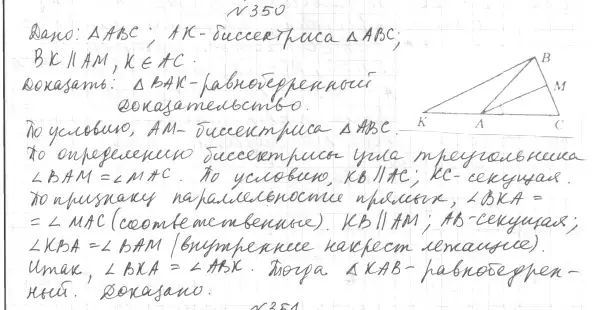 №350
Дано: △ABC; AK-биссектриса △ABC;
BK∥AM, K∈AC.
Доказать: △BAK-равнобедренный
Доказательство.
По условию, AM-биссектриса △ABC.
По определению биссектрисы угла треугольника
∠BAM=∠MAC. По условию, KB∥AC; KC-секущая.
По признаку параллельности прямых, ∠BKA=
=∠MAC (соответственные). KB∥AM; AB-секущая;
∠KBA=∠BAM (внутренние накрест лежащие).
Итак, ∠BKA=∠ABK. Тогда △KAB-равнобедрен-
ный. Доказано.
B
M
K A C
№351